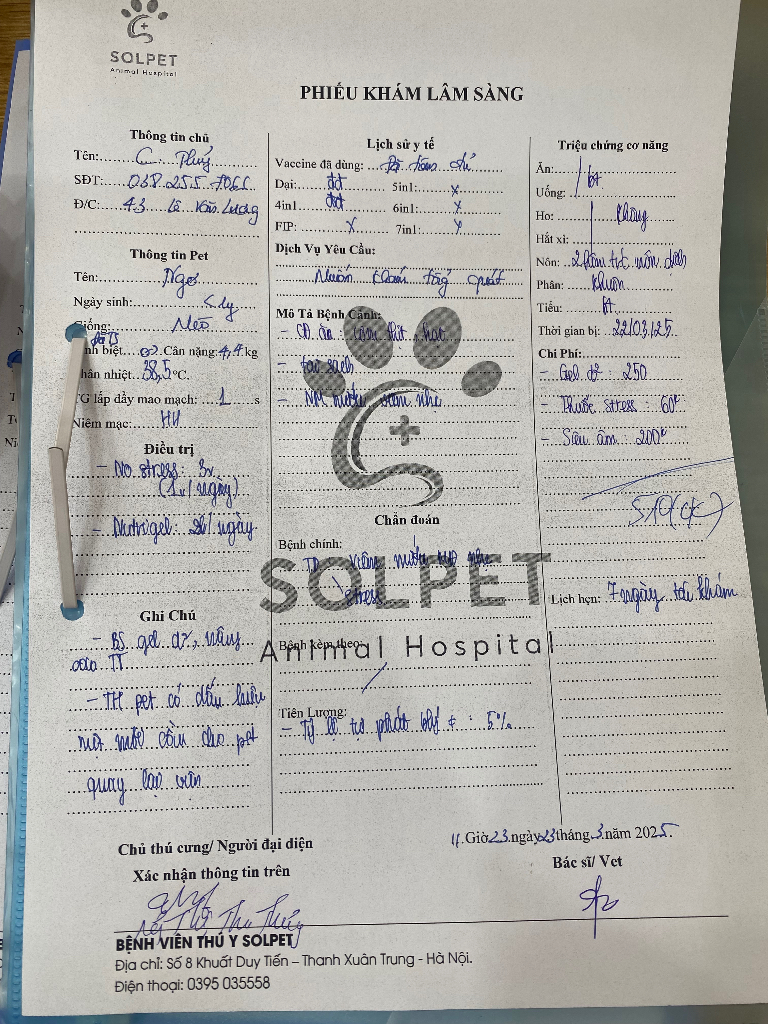 SOLPET
Animal Hospital
PHIẾU KHÁM LÂM SÀNG
Thông tin chủ
Tên: C. Thúy
SĐT: 038.255.7066
Đ/C: 43 Lê Văn Lương
Thông tin Pet
Tên: Ngơ
Ngày sinh:
Giống: Mèo
Cân nặng: 4,4 kg
Thân nhiệt 38,5 °C.
TG lấp đầy mao mạch: 1 s
Niêm mạc: HH
Điều trị
- No stress: 3v
(1v/ngày)
- Nutrigel: 2l/ngày
Ghi Chú
- BS gel d², nâng
cao TT
- TH pet có dấu hiệu
mệt mỏi cần cho pet
quay lại viện
Lịch sử y tế
Vaccine đã dùng:
Dại: 5in1: x
4in1 6in1: x
FIP: x 7in1: x
Dịch Vụ Yêu Cầu:
Muốn khám tổng quát
Mô Tả Bệnh Cảnh:
- CĐ ăn: hạt
- NM nướu viêm nhẹ
SOLPET
Animal Hospital
Chẩn đoán
Bệnh chính:
TD viêm nướu nhẹ
stress
Bệnh kèm theo:
Tiên Lượng:
- Tỷ lệ tự phát bly ≠ : 5%
Triệu chứng cơ năng
Ăn:
Uống: bt
Ho: Không
Hắt xì:
Nôn: 2 hôm trc nôn dịch
Phân: khuôn
Tiểu: bt
Thời gian bị: 22/03/25
Chi Phí:
- Gel d²: 250
- Thuốc stress: 60k
- Siêu âm: 200k
510(ck)
Lịch hẹn: 7 ngày tái khám
Chủ thú cưng/ Người đại diện
Xác nhận thông tin trên
11 Giờ 23 ngày 23 tháng 3 năm 2025
Bác sĩ/ Vet
BỆNH VIÊN THÚ Y SOLPET
Địa chỉ: Số 8 Khuất Duy Tiến – Thanh Xuân Trung - Hà Nội.
Điện thoại: 0395 035558